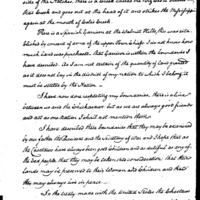 side of the
this creek and goes out at the head of it and strikes the Mississippi
against the mouth of
There is a Spanish Garrison at the Walnut Hills, this was esta-
blished by consent of some of the upper town chiefs. I do not know how
much land was purchased, that Garrison is within the boundaries I
have described. As I am not certain of the quantity of land granted
as it does not lay in the district of my nation to which I belong, it
must be settled by the Nation
I have now done respecting my boundaries. there is which
between us and the Chickasaws. But as we are always good friends
and act as one Nation I shall not mention them.
I have described these boundaries that they may be examined
by our father the President and the Secretary of War and I hope that as
the Choctaws have always been good children and as dutiful as any of
the red people that they may be taken into consideration that their
Lands may be preserved to their Women and children and that
they may always live in peace
In the treaty made with the United States the Choctaws